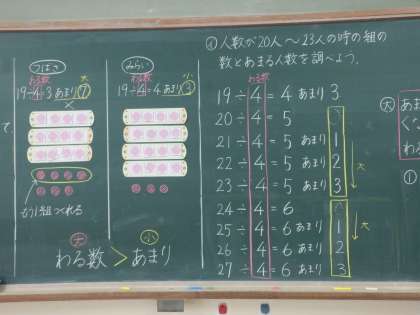 つばさ
わる数
大
19÷4=3 あまり 7
×
もう1組つくれる
みらい
わる数
小
19÷4=4 あまり 3
大 小
わる数 > あまり
④ 人数が20人〜23人の時の組の
数とあまる人数を調べよう。
わる数
19÷4=4 あまり 3
20÷4=5
21÷4=5 あまり 1
22÷4=5 あまり 2
23÷4=5 あまり 3
大
24÷4=6
25÷4=6 あまり 1
26÷4=6 あまり 2
27÷4=6 あまり 3
大
て、
大
あ
くな
わる
①